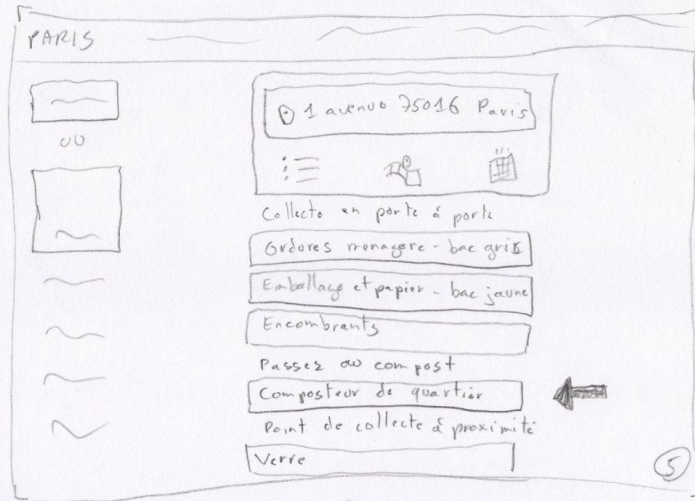 PARIS
1 avenue 75016 Paris
ou
Collecte en porte à porte
Ordures menagere - bac gris
Emballage et papier - bac jaune
Encombrants
Passez au compost
Composteur de quartier
Point de collecte à proximité
Verre
5